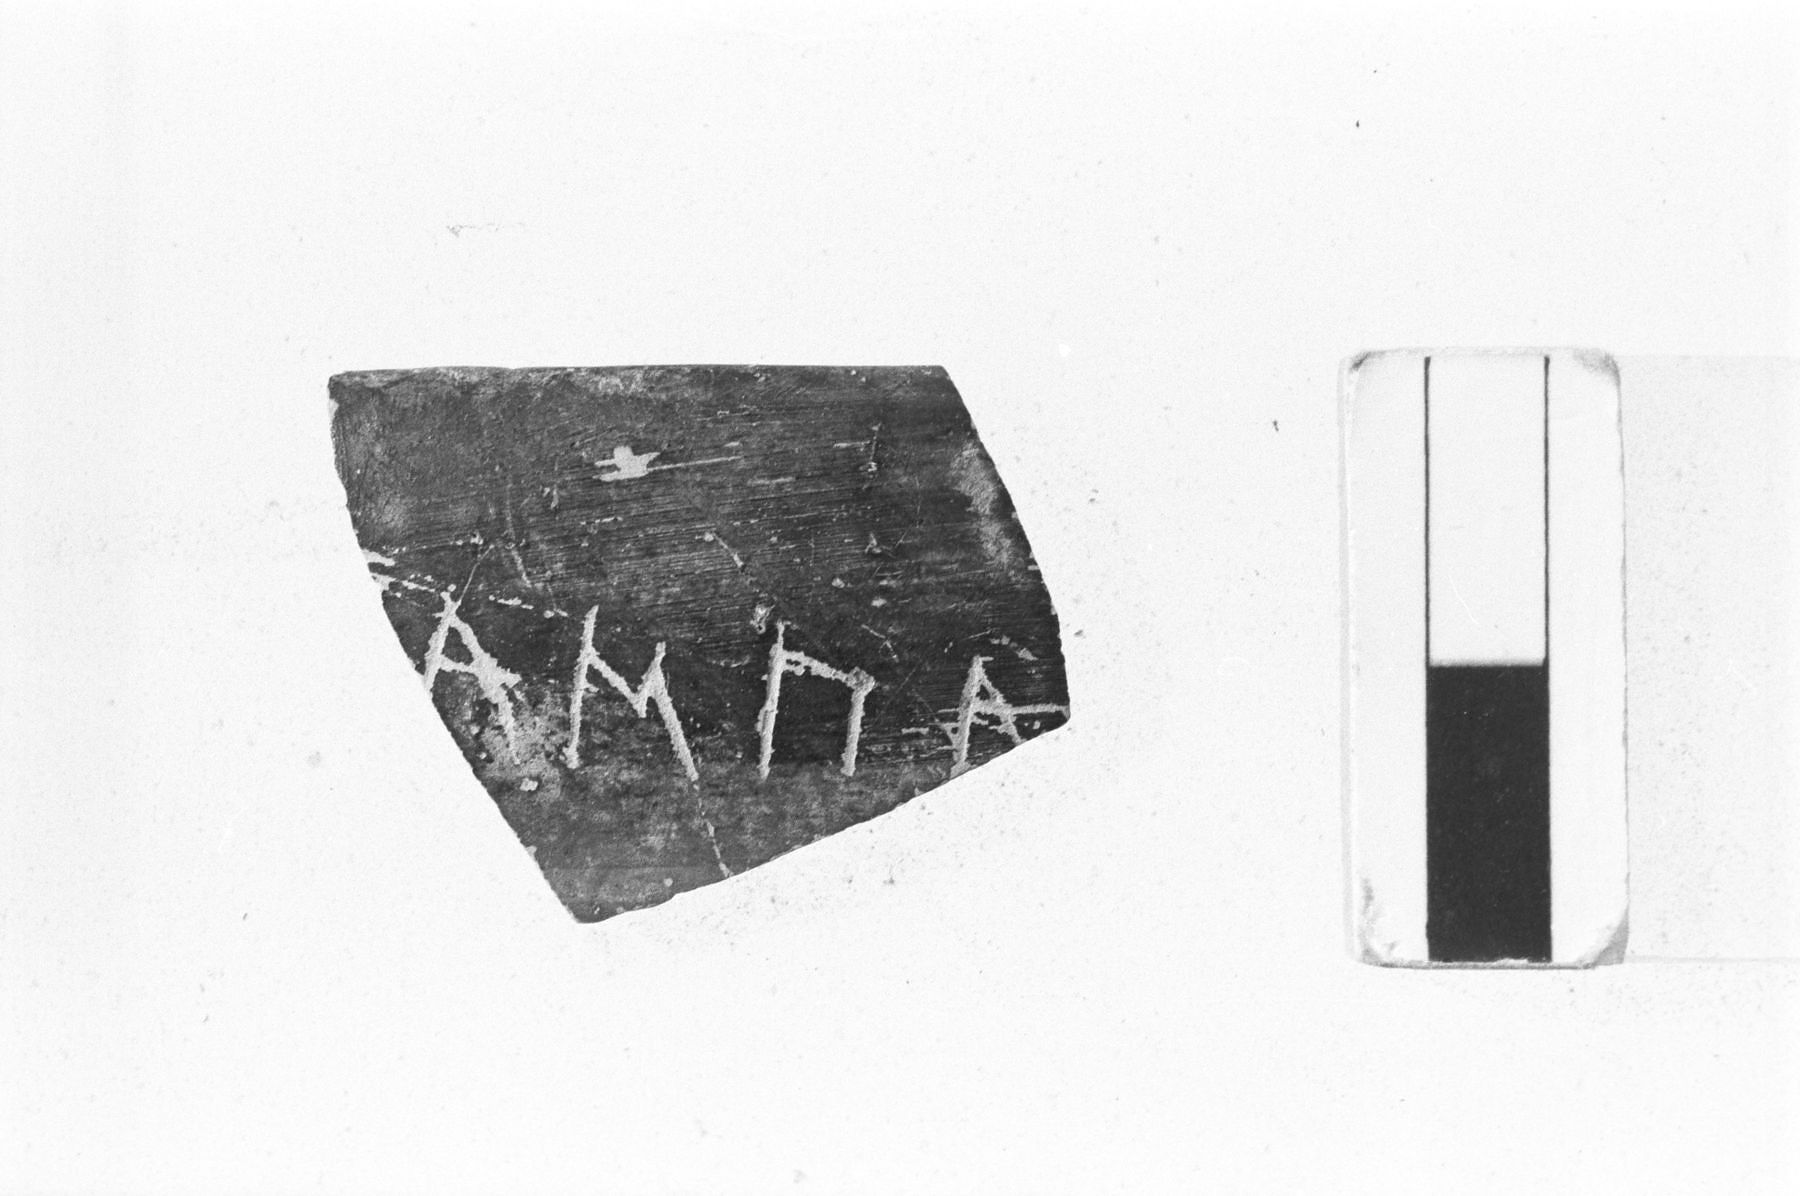 ΑΜΠΑ